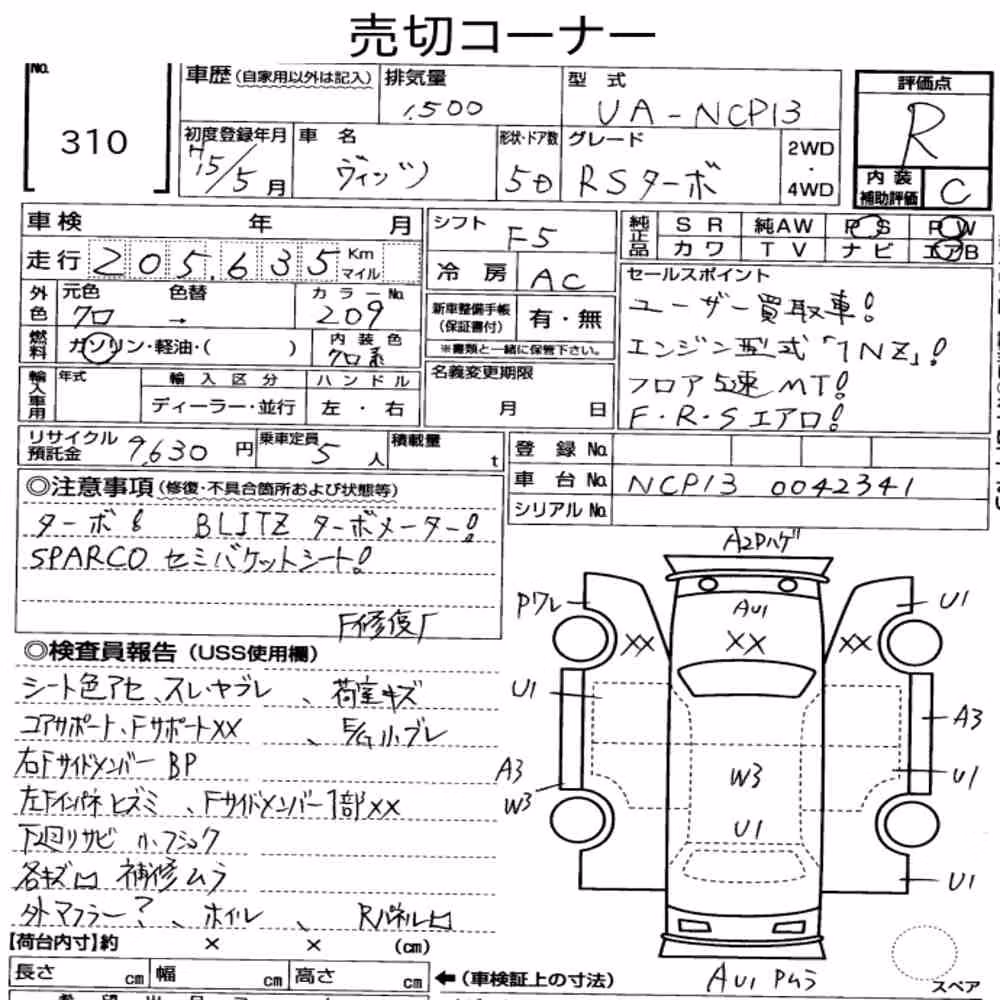 売切コーナー
No.
310
車歴(自家用以外は記入)
排気量
1,500
型式
UA-NCP13
評価点
R
内装補助評価
C
初度登録年月
H15/5月
車名
ヴィッツ
形状・ドア数
5D
グレード
RSターボ
2WD
・
4WD
車検 年 月
走行 205,635 Km マイル
シフト
F5
冷房
AC
純正品
SR 純AW PS PW
カワ TV ナビ エアB
外色
元色 色替
クロ →
カラーNo.
209
燃料
ガソリン・軽油・( )
内装色
クロ系
新車整備手帳(保証書付)
有・無
※書類と一緒に保管下さい。
セールスポイント
ユーザー買取車!
エンジン型式「1NZ」!
フロア5速MT!
F・R・Sエアロ!
輸入車用
年式
輸入区分
ハンドル
ディーラー・並行
左・右
名義変更期限
月 日
リサイクル預託金
9,630円
乗車定員
5人
積載量
t
登録No.
車台No.
NCP13 0042341
シリアルNo.
◎注意事項(修復・不具合箇所および状態等)
ターボ& BLITZ ターボメーター!
SPARCO セミバケットシート!
F修復
◎検査員報告(USS使用欄)
シート色アセ、スレ・ヤブレ、荷室キズ
コアサポート、FサポートXX、E/G小ブレ
右FサイドメンバーBP
左Fインパネヒズミ、Fサイドメンバー1部XX
下回りサビ 小、フショク
各キズ凹 補修ムラ
外マフラー?、ホイル、Rパネル凹
【荷台内寸】約 × × (cm)
長さ cm 幅 cm 高さ cm
←(車検証上の寸法)
A2Pハゲ
AU1
XX
Pワレ
XX
XX
U1
U1
A3
A3
W3
W3
U1
U1
U1
AU1 Pムラ
スペア